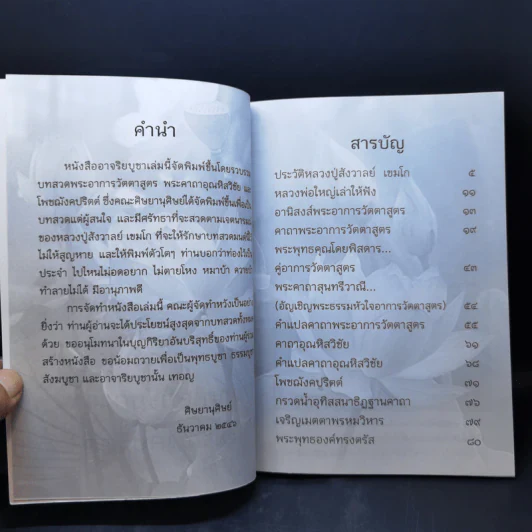 คำนำ
หนังสืออาจริยบูชาเล่มนี้จัดพิมพ์ขึ้นโดยรวบรวม
บทสวดพระอาการวัตตาสูตร พระคาถาอุณหิสวิชัย และ
โพชฌังคปริตต์ ซึ่งคณะศิษยานุศิษย์ได้จัดพิมพ์ขึ้นเพื่อเป็น
บทสวดแด่ผู้สนใจ และมีศรัทธาที่จะสวดตามเจตนารมณ์
ของหลวงปู่สังวาลย์ เขมโก ที่จะให้รักษาบทสวดมนต์นี้
ไม่ให้สูญหาย และให้พิมพ์ตัวโตๆ ท่านบอกว่าท่องไว้เป็น
ประจำ ไปไหนไม่อดอยาก ไม่ตายโหง หมาบ้า ควาย
ทำลายไม่ได้ มีอานุภาพดี
การจัดทำหนังสือเล่มนี้ คณะผู้จัดทำหวังเป็นอย่าง
ยิ่งว่า ท่านผู้อ่านจะได้ประโยชน์สูงสุดจากบทสวดทั้งหมด
ด้วย ขออนุโมทนาในบุญกิริยาอันบริสุทธิ์ของท่านผู้ร่วม
สร้างหนังสือ ขอน้อมถวายเพื่อเป็นพุทธบูชา ธรรมบูชา
สังฆบูชา และอาจาริยบูชานั้น เทอญ
ศิษยานุศิษย์
ธันวาคม ๒๕๔๖
สารบัญ
ประวัติหลวงปู่สังวาลย์ เขมโก ๕
หลวงพ่อใหญ่เล่าให้ฟัง ๑๑
อานิสงส์พระอาการวัตตาสูตร ๑๓
คาถาพระอาการวัตตาสูตร ๑๙
พระพุทธคุณโดยพิสดาร...
คู่อาการวัตตาสูตร ๔๓
พระคาถาสุนทรีวาณี...
(อัญเชิญพระธรรมหัวใจอาการวัตตาสูตร) ๕๔
คำแปลคาถาพระอาการวัตตาสูตร ๕๕
คาถาอุณหิสวิชัย ๖๑
คำแปลคาถาอุณหิสวิชัย ๖๘
โพชฌังคปริตต์ ๗๑
กรวดน้ำอุทิสสนาธิฏฐานคาถา ๗๖
เจริญเมตตาพรหมวิหาร ๗๙
พระพุทธองค์ทรงตรัส ๘๐